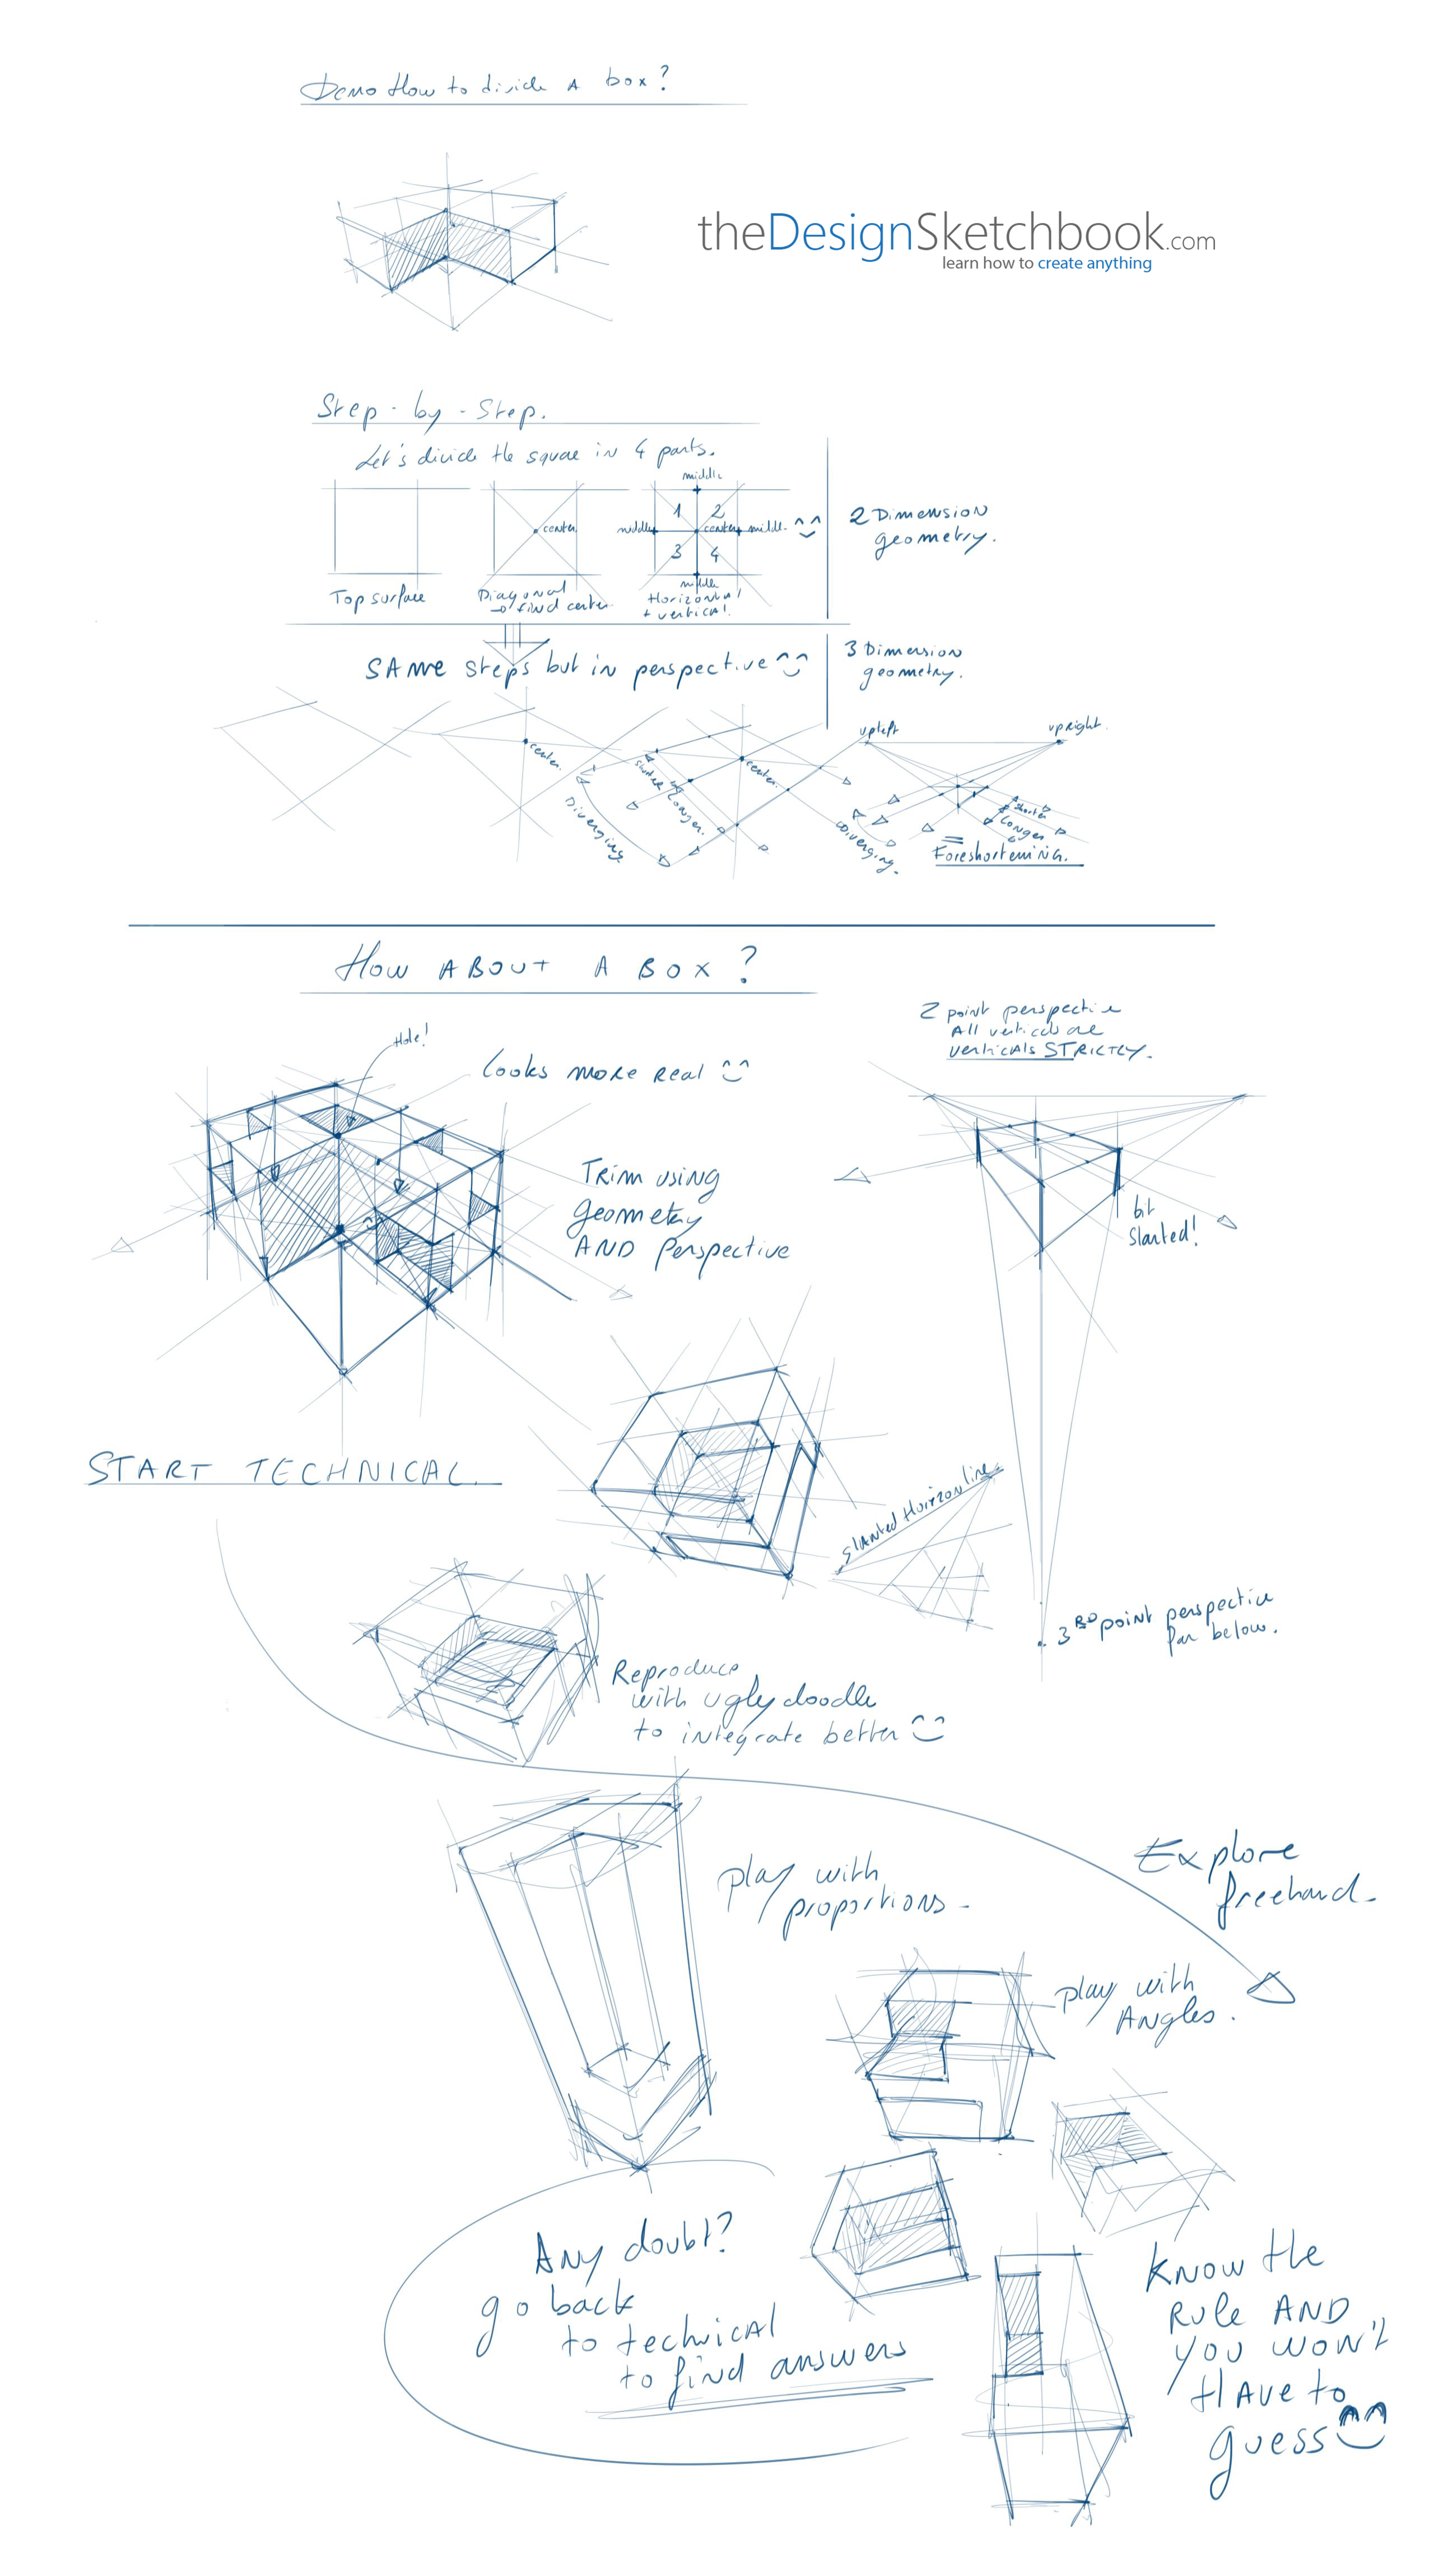 Demo How to divide A box?
theDesignSketchbook.com
learn how to create anything
Step-by-Step.
Let's divide the square in 4 parts.
middle
1 2
center
middle center middle
3 4
middle
2 Dimension
geometry.
Top surface
Diagonal
→ find center
Horizontal
+ vertical
SAME steps but in perspective
3 Dimension
geometry.
upleft
upright.
center.
center.
shorter
longer.
Diverging
Diverging.
shorter
longer
=
Foreshortening.
How ABOUT A BOX?
2 point perspective
All verticals are
verticals STRICTLY.
Hole!
Looks more real
Trim using
geometry
AND perspective
bit
slanted!
START TECHNICAL
Slanted Horizon line
3RD point perspective
far below.
Reproduce
with ugly doodle
to integrate better
Explore
freehand.
play with
proportions-
play with
Angles.
Any doubt?
go back
to technical
to find answers
Know the
Rule AND
you won't
Have to
guess